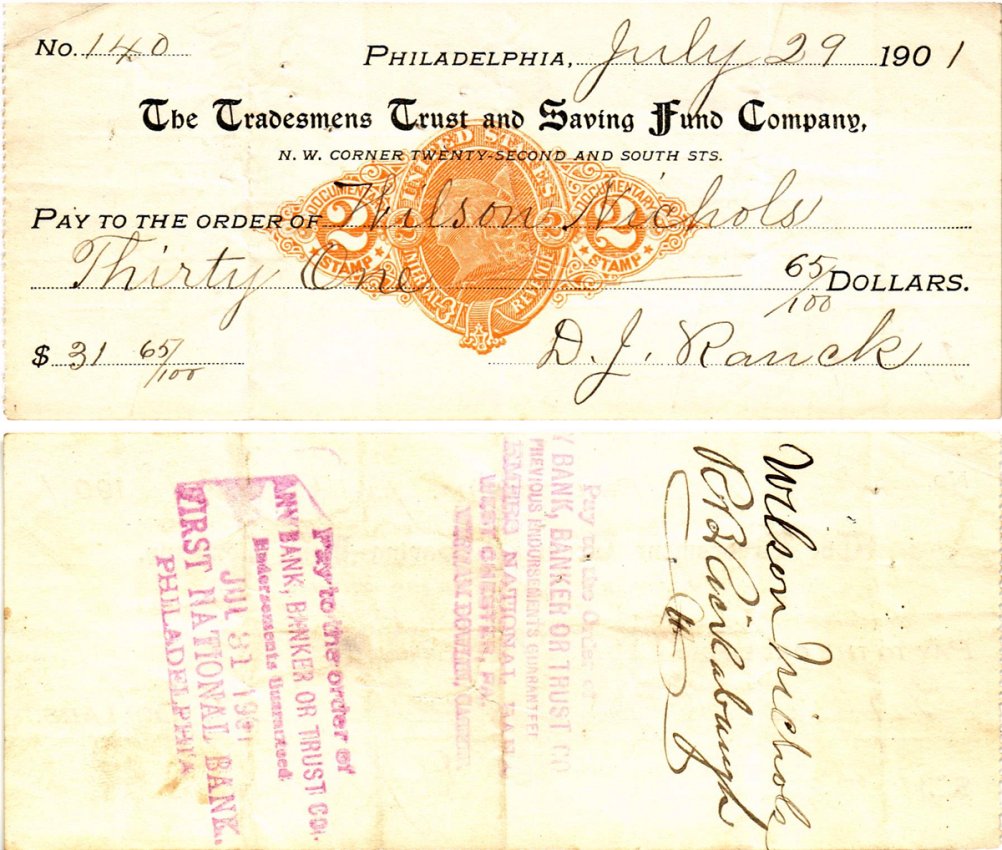 No. 140 PHILADELPHIA, July 29 1901
The Tradesmens Trust and Saving Fund Company,
N. W. CORNER TWENTY-SECOND AND SOUTH STS.
UNITED STATES
DOCUMENTARY DOCUMENTARY
PAY TO THE ORDER OF Wilson Nichols
2 2 2 2
STAMP STAMP
INTERNAL REVENUE
Thirty One 65/100 DOLLARS.
$ 31 65/100 D. J. Ranck
Wilson Nichols
Pay to the Order of
Y BANK, BANKER OR TRUST CO
PREVIOUS INDORSEMENTS GUARANTEED
NATIONAL BANK
WEST CHESTER, PA.
CASHIER
Pay to the order of
ANY BANK, BANKER OR TRUST CO.
Endorsements Guaranteed
JUL 31 1901
FIRST NATIONAL BANK.
PHILADELPHIA